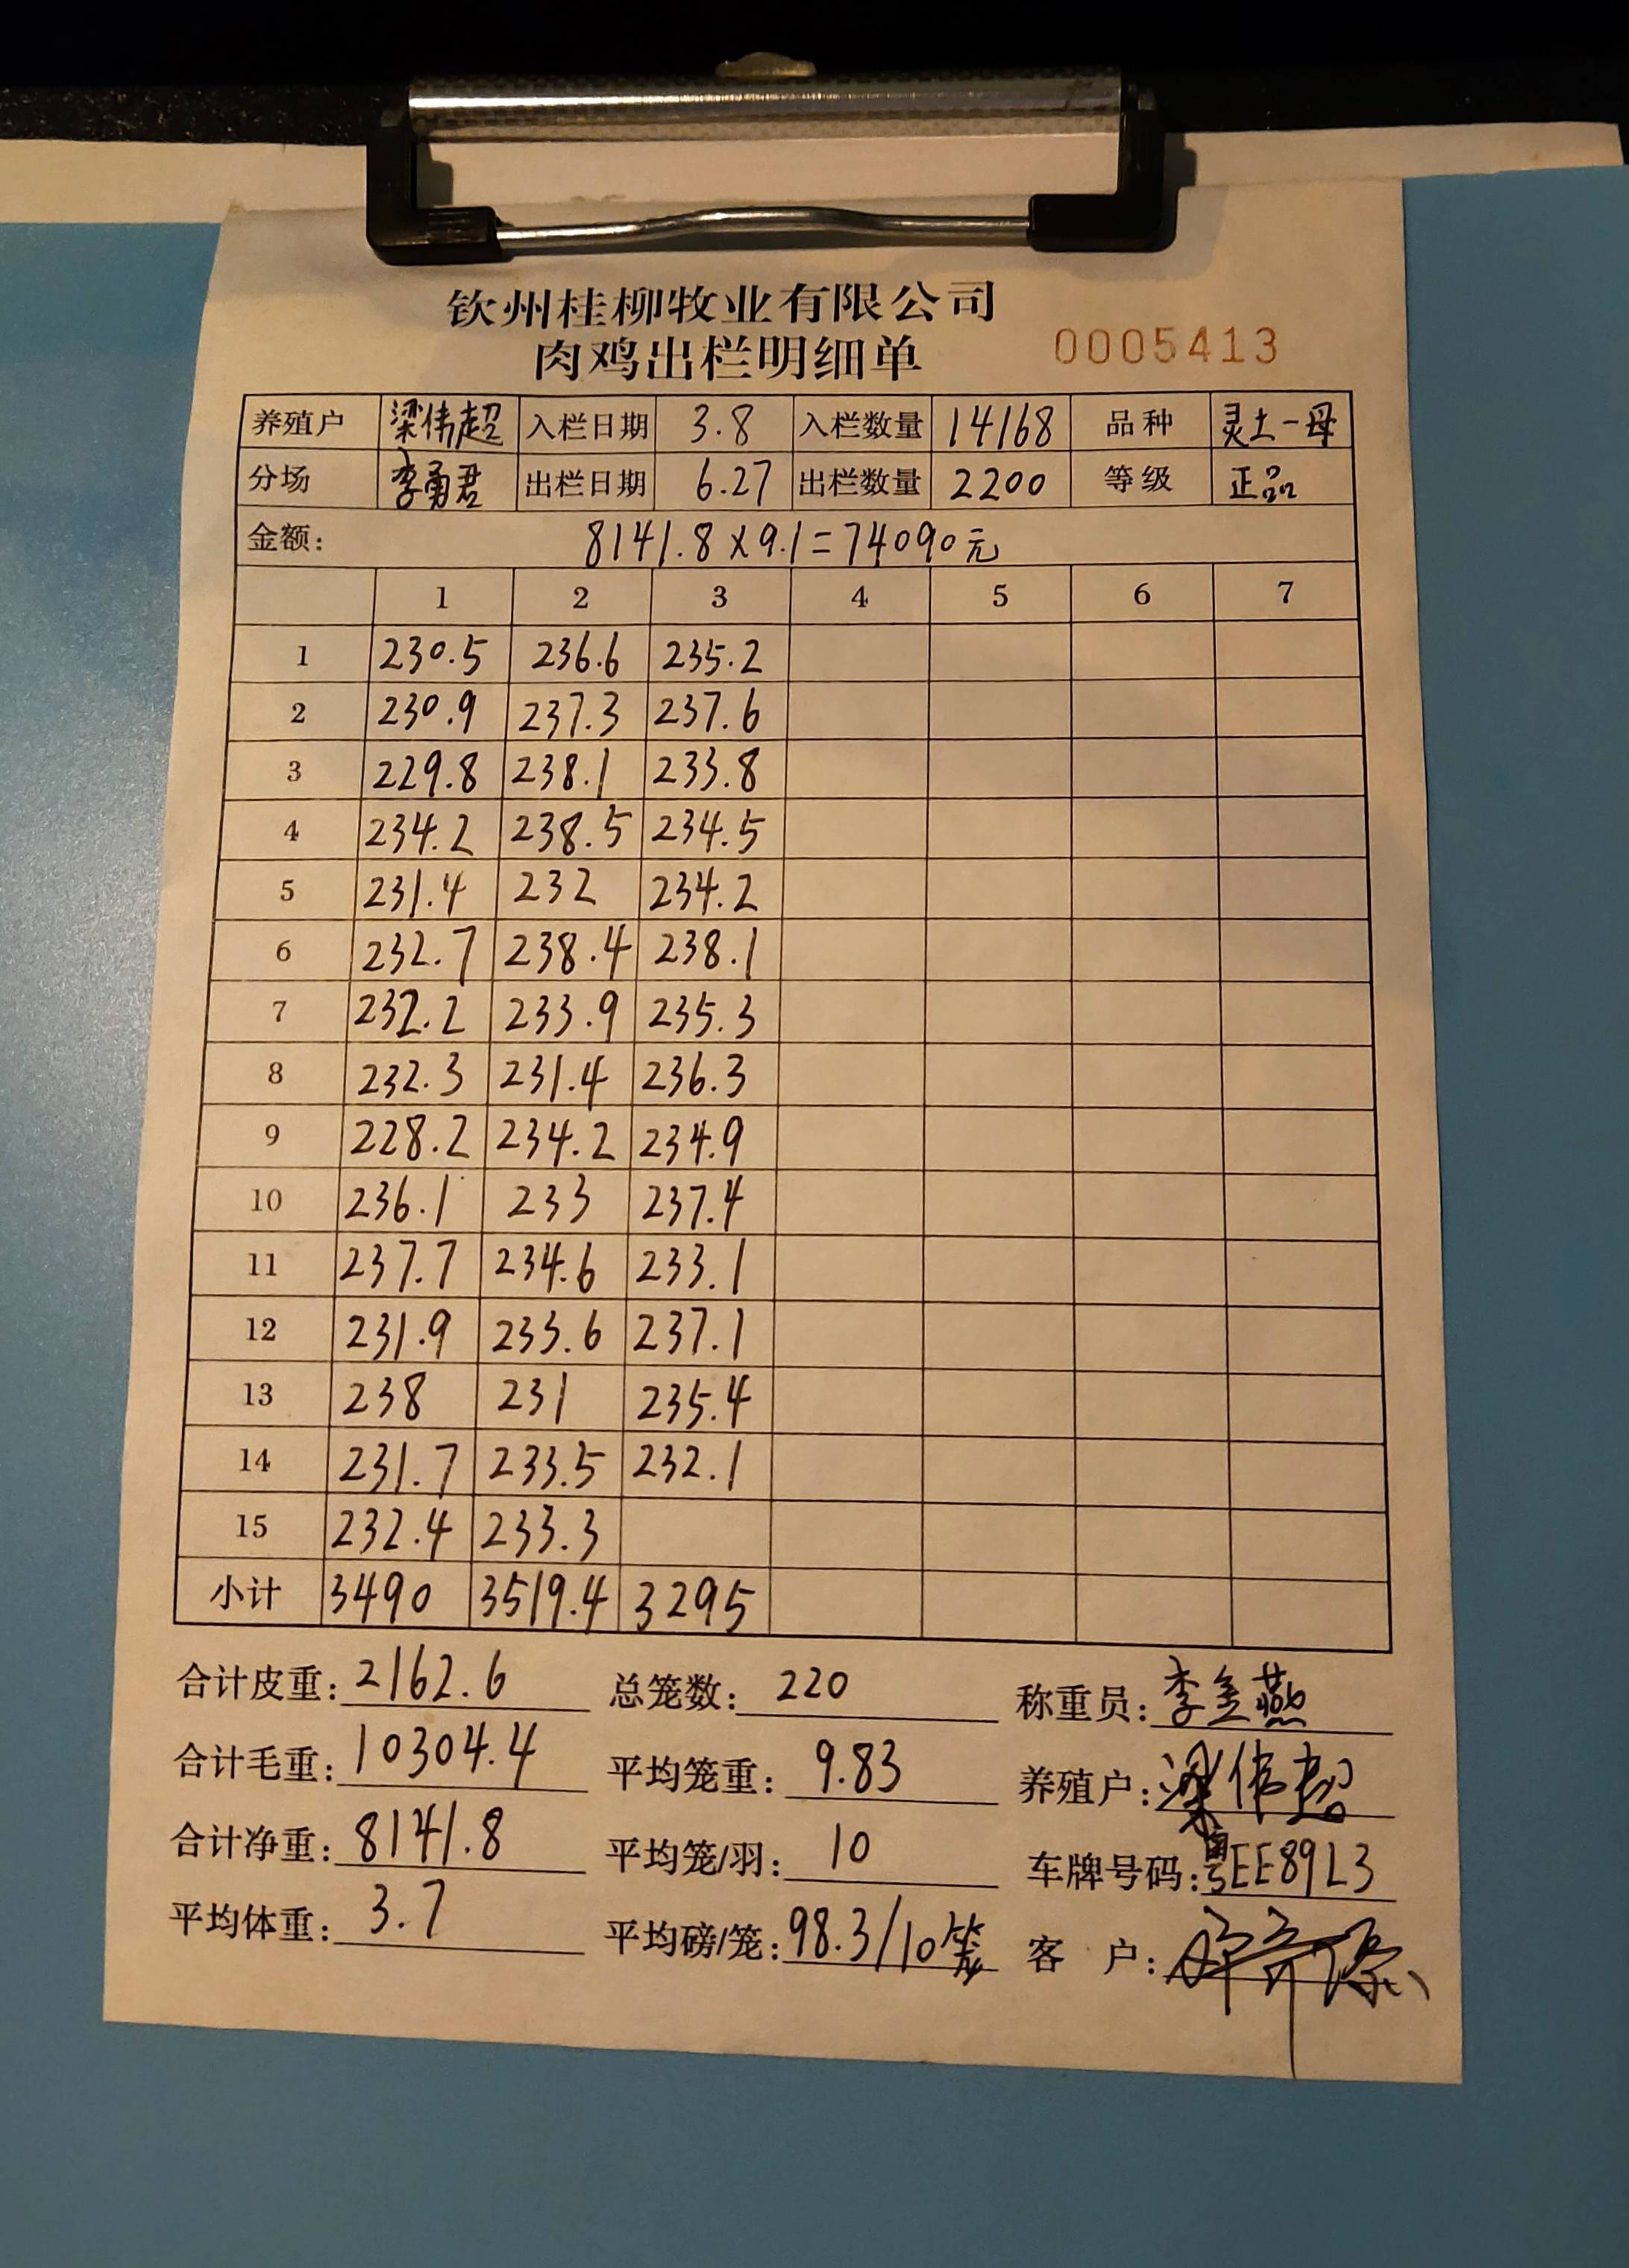 钦州桂柳牧业有限公司
肉鸡出栏明细单 0005413
养殖户 梁伟超 入栏日期 3.8 入栏数量 14168 品种 灵土一母
分场 李勇君 出栏日期 6.27 出栏数量 2200 等级 正品
金额: 8141.8×9.1=74090元
1 2 3 4 5 6 7
1 230.5 236.6 235.2
2 230.9 237.3 237.6
3 229.8 238.1 233.8
4 234.2 238.5 234.5
5 231.4 232 234.2
6 232.7 238.4 238.1
7 232.2 233.9 235.3
8 232.3 231.4 236.3
9 228.2 234.2 234.9
10 236.1 233 237.4
11 237.7 234.6 233.1
12 231.9 233.6 237.1
13 238 231 235.4
14 231.7 233.5 232.1
15 232.4 233.3
小计 3490 3519.4 3295
合计皮重: 2162.6 总笼数: 220 称重员: 李金燕
合计毛重: 10304.4 平均笼重: 9.83 养殖户: 梁伟超
合计净重: 8141.8 平均笼/羽: 10 车牌号码: 粤EE89L3
平均体重: 3.7 平均磅/笼: 98.3/10笼 客户: